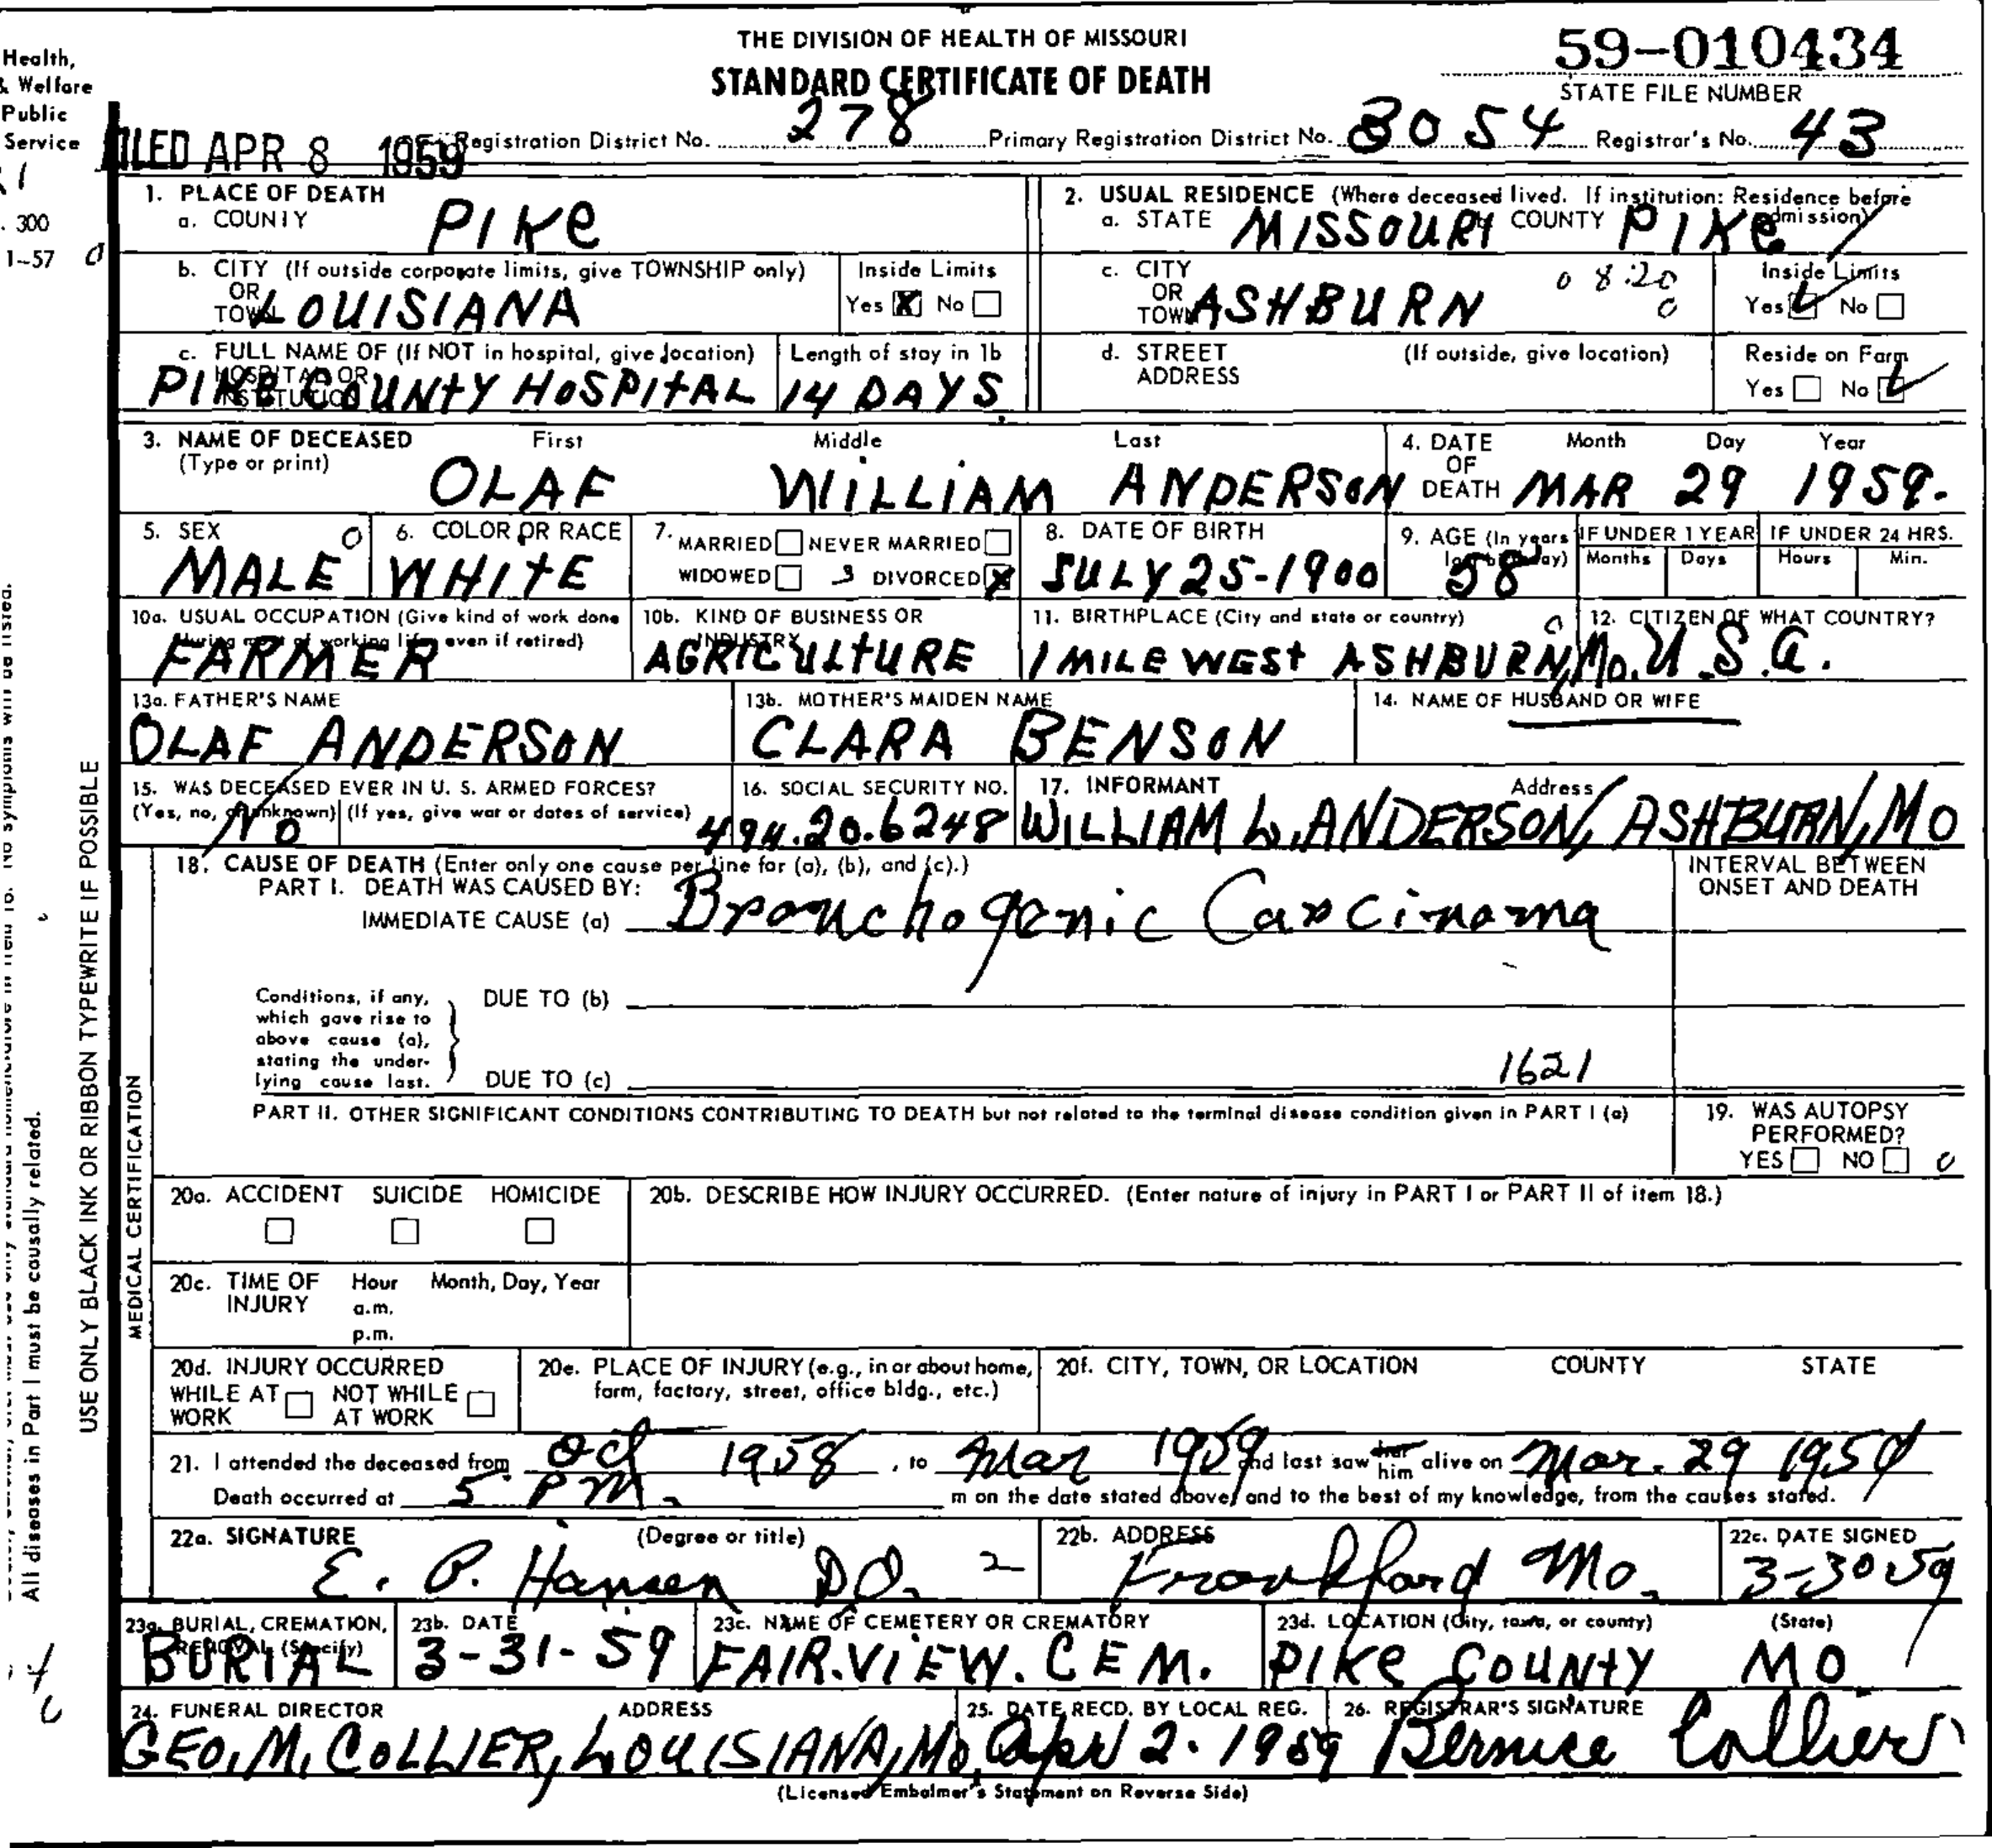 THE DIVISION OF HEALTH OF MISSOURI
STANDARD CERTIFICATE OF DEATH
59-010434
STATE FILE NUMBER
Health,
& Welfare
Public
Service
. 300
1-57 0
FILED APR 8 1959 Registration District No. 278 Primary Registration District No. 3054 Registrar's No. 43
1. PLACE OF DEATH
a. COUNTY PIKE
2. USUAL RESIDENCE (Where deceased lived. If institution: Residence before admission)
a. STATE MISSOURI COUNTY PIKE
b. CITY (If outside corporate limits, give TOWNSHIP only)
OR
TOWN LOUISIANA
Inside Limits
Yes X No
c. CITY
OR
TOWN ASHBURN
0820
0
Inside Limits
Yes No
c. FULL NAME OF (If NOT in hospital, give location)
HOSPITAL OR
INSTITUTION PIKE COUNTY HOSPITAL
Length of stay in 1b
14 DAYS
d. STREET
ADDRESS
(If outside, give location)
Reside on Farm
Yes No
3. NAME OF DECEASED
(Type or print)
First Middle Last
OLAF WILLIAM ANDERSON
4. DATE
OF
DEATH
Month Day Year
MAR 29 1959.
5. SEX 0
MALE
6. COLOR OR RACE
WHITE
7. MARRIED NEVER MARRIED
WIDOWED 3 DIVORCED X
8. DATE OF BIRTH
JULY 25-1900
9. AGE (In years
last birthday)
58
IF UNDER 1 YEAR
Months Days
IF UNDER 24 HRS.
Hours Min.
10a. USUAL OCCUPATION (Give kind of work done
during most of working life, even if retired)
FARMER
10b. KIND OF BUSINESS OR
INDUSTRY
AGRICULTURE
11. BIRTHPLACE (City and state or country) 0
1 MILE WEST ASHBURN, MO.
12. CITIZEN OF WHAT COUNTRY?
U.S.A.
13a. FATHER'S NAME
OLAF ANDERSON
13b. MOTHER'S MAIDEN NAME
CLARA BENSON
14. NAME OF HUSBAND OR WIFE
15. WAS DECEASED EVER IN U. S. ARMED FORCES?
(Yes, no, or unknown) (If yes, give war or dates of service)
NO
16. SOCIAL SECURITY NO.
494.20.6248
17. INFORMANT Address
WILLIAM L. ANDERSON, ASHBURN, MO
18. CAUSE OF DEATH (Enter only one cause per line for (a), (b), and (c).)
PART I. DEATH WAS CAUSED BY:
IMMEDIATE CAUSE (a) Bronchogenic Carcinoma
INTERVAL BETWEEN
ONSET AND DEATH
Conditions, if any,
which gave rise to
above cause (a),
stating the under-
lying cause last.
DUE TO (b)
DUE TO (c) 1621
PART II. OTHER SIGNIFICANT CONDITIONS CONTRIBUTING TO DEATH but not related to the terminal disease condition given in PART I (a)
19. WAS AUTOPSY
PERFORMED?
YES NO 0
20a. ACCIDENT SUICIDE HOMICIDE
20b. DESCRIBE HOW INJURY OCCURRED. (Enter nature of injury in PART I or PART II of item 18.)
20c. TIME OF
INJURY
Hour Month, Day, Year
a.m.
p.m.
20d. INJURY OCCURRED
WHILE AT
WORK
NOT WHILE
AT WORK
20e. PLACE OF INJURY (e.g., in or about home,
farm, factory, street, office bldg., etc.)
20f. CITY, TOWN, OR LOCATION COUNTY STATE
21. I attended the deceased from Oct 1958, to Mar 1959 and last saw her him alive on Mar. 29 1959
Death occurred at 5 P M. m on the date stated above, and to the best of my knowledge, from the causes stated.
22a. SIGNATURE (Degree or title)
E. P. Hansen DO. 2
22b. ADDRESS
Frankford Mo.
22c. DATE SIGNED
3-30-59
23a. BURIAL, CREMATION,
REMOVAL (Specify)
BURIAL
23b. DATE
3-31-59
23c. NAME OF CEMETERY OR CREMATORY
FAIR.VIEW.CEM.
23d. LOCATION (City, town, or county) (State)
PIKE COUNTY MO
24. FUNERAL DIRECTOR ADDRESS
GEO. M. COLLIER, LOUISIANA, MO.
25. DATE RECD. BY LOCAL REG.
Apr 2. 1959
26. REGISTRAR'S SIGNATURE
Bernice Collier
(Licensed Embalmer's Statement on Reverse Side)
MEDICAL CERTIFICATION
USE ONLY BLACK INK OR RIBBON TYPEWRITE IF POSSIBLE
All diseases in Part I must be causally related.
No symptoms will be listed.